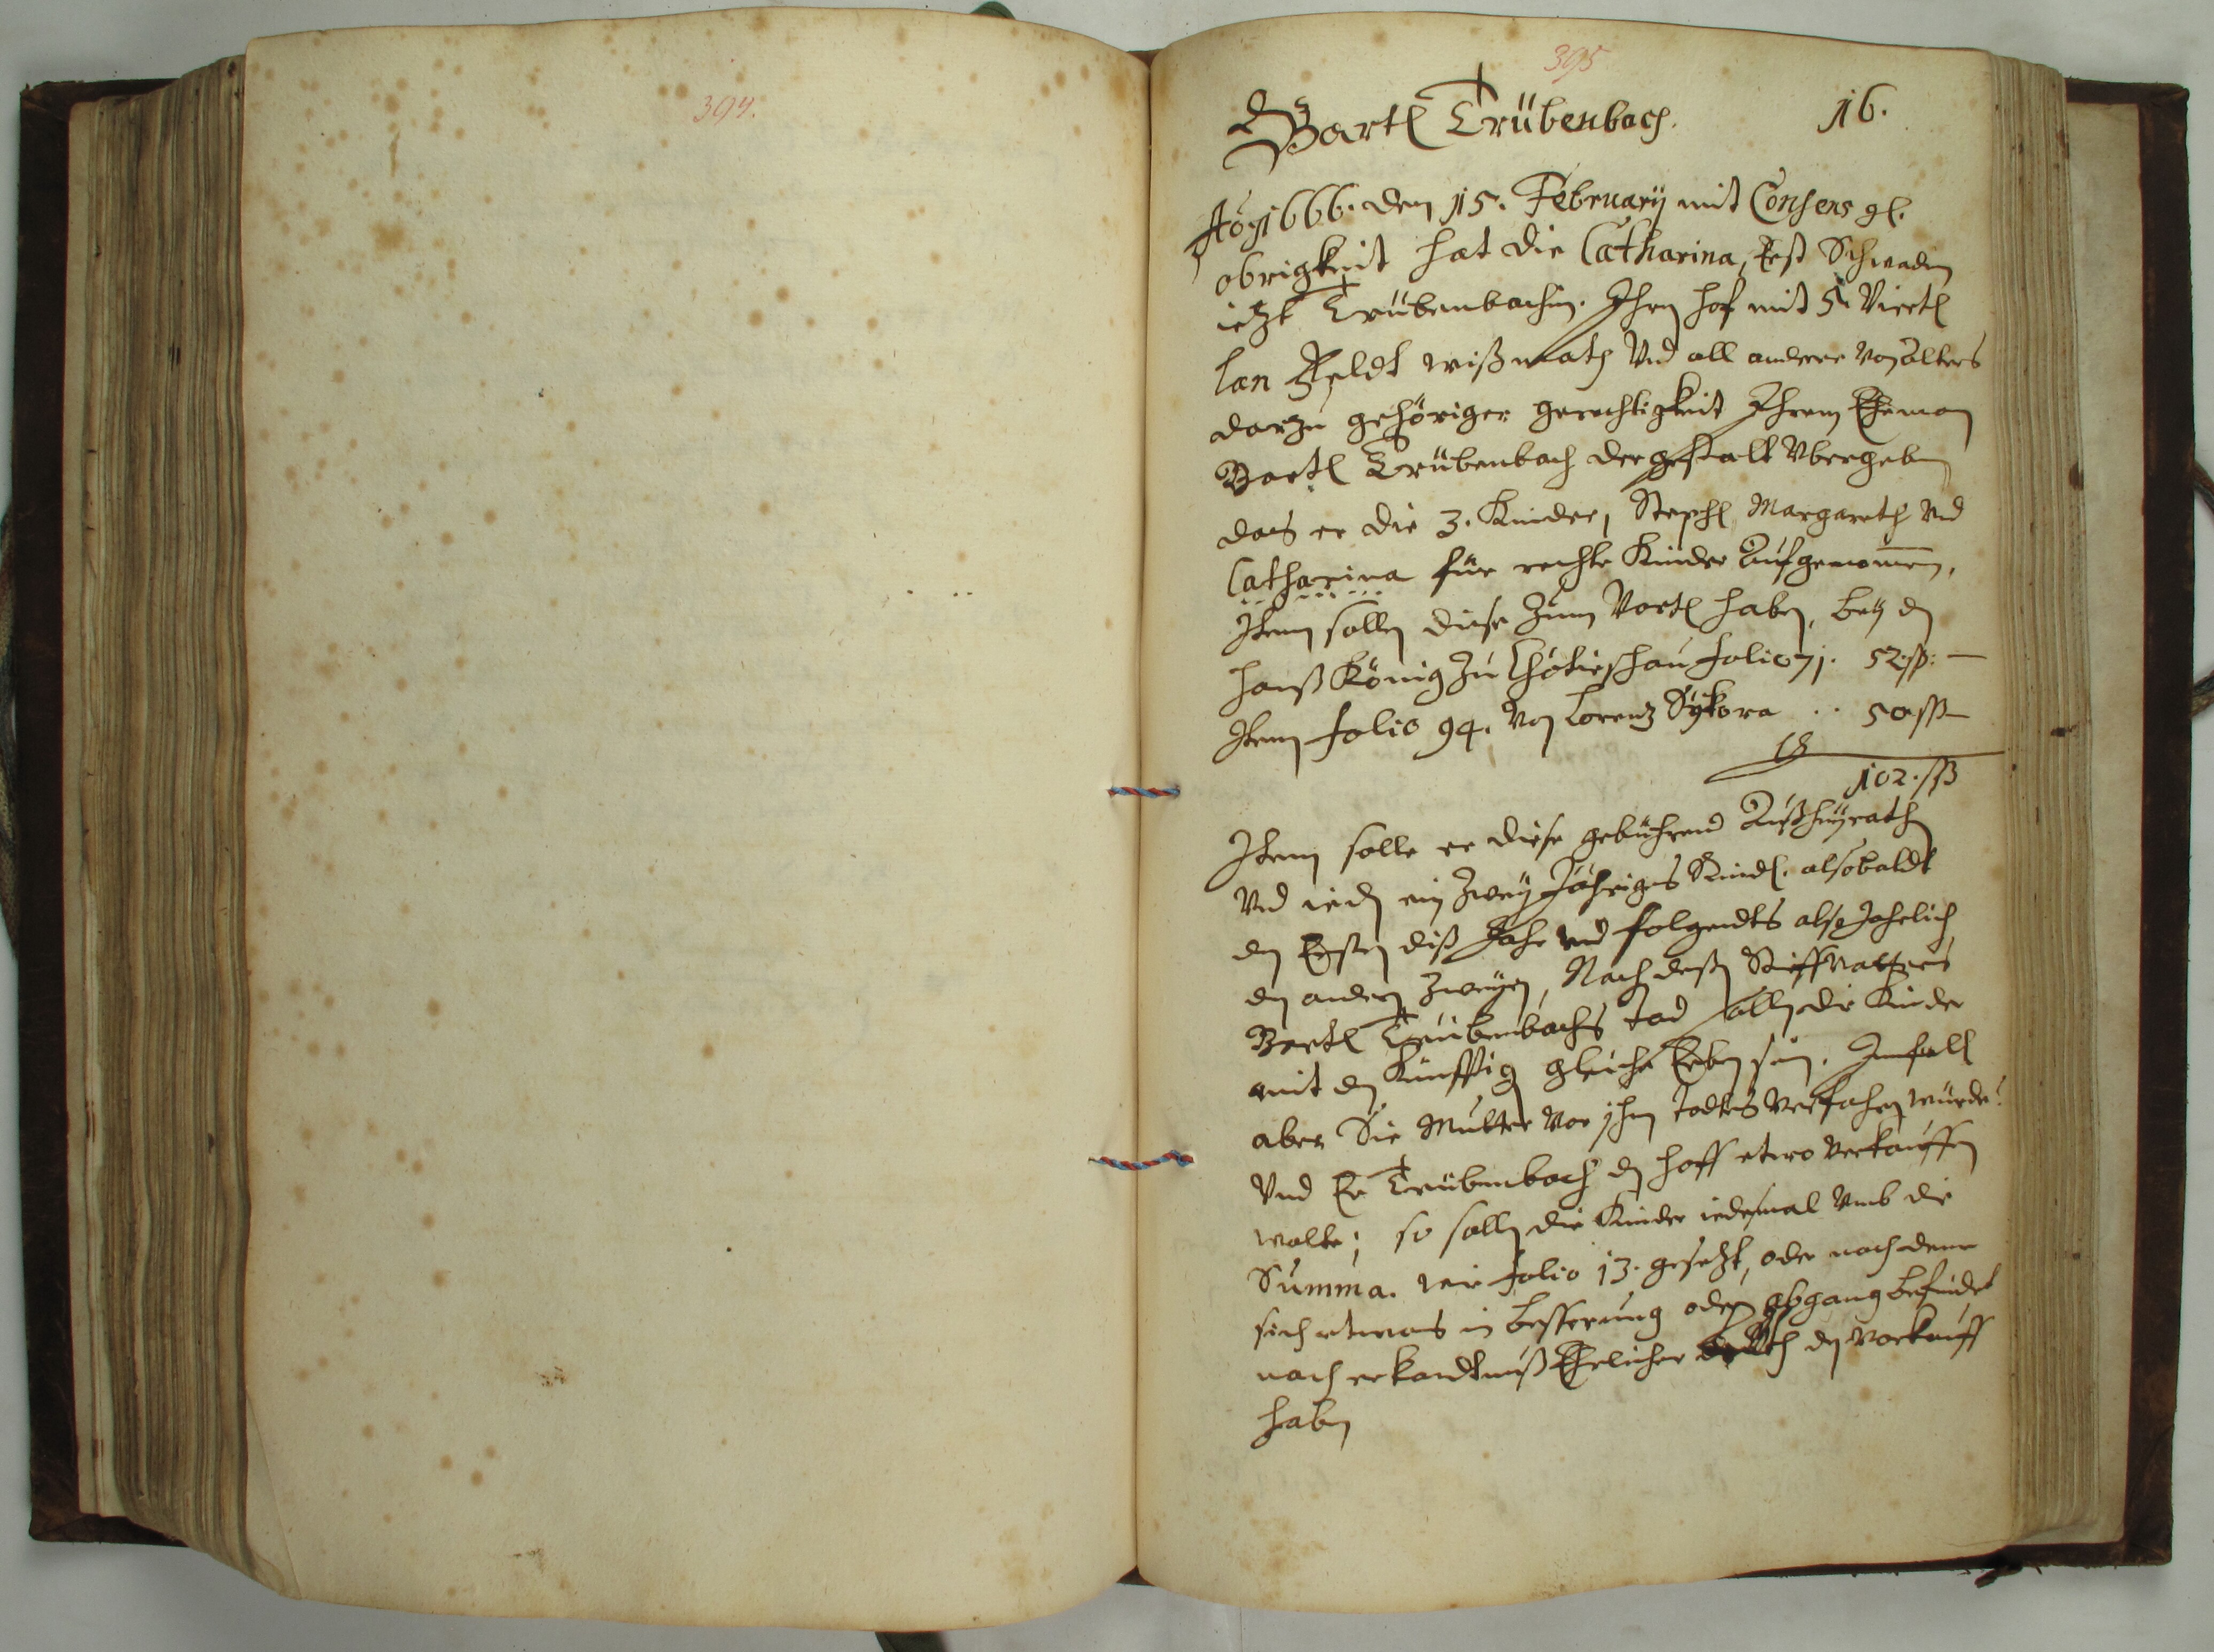 394.
395
Bartl Trübenbach. 16.
Aõ 1666. den 15. February mit Consens gl.
obrigkeit hat die Catharina, Schwadin
ietzt Trübenbachin. Ihren hof mit 5. Viertl
lan Feldt wißmath Vnd all andere von alters
darzu gehöriger gerechtigkeit Ihrem Eheman
Bartl Trübenbach der gestalt Vbergeben
das er die 3. Kinder, Stephl Margareth Vnd
Catharina für rechte Kinder Aufgenomen,
Item sollen diese Zum Vortl haben, bey den
hanß König Zu Chotieschau folio 71. 52 ß —
Item folio 94. Von Lorentz Sykora .. 50 ß —
102. ß
Item solle er diese gebührend Außheyrathen
Vnd ieden ein Zwey Jähriges Rindl. alsobaldt
den Ersten diß Jahr vnd folgendts also Jahrlich
den andern Zweyen, Nach deßen Stieffvatters
Bartl Trübenbachs tod sollen die Kinder
mit den Künfftig gleiche Erben sein. Im fall
aber Sie Mutter Vor ihm todtes Verfahren würde
Vnd Er Trübenbach den hoff etwo Verkauffen
wolte; so sollen die Kinder iedesmal Vmb die
Summa. wie folio 13. gesetzt, oder nach deme
sich etwas in besserung oder abgang befindet
nach erkandtnuß Ehrlicher den Vorkauff
haben